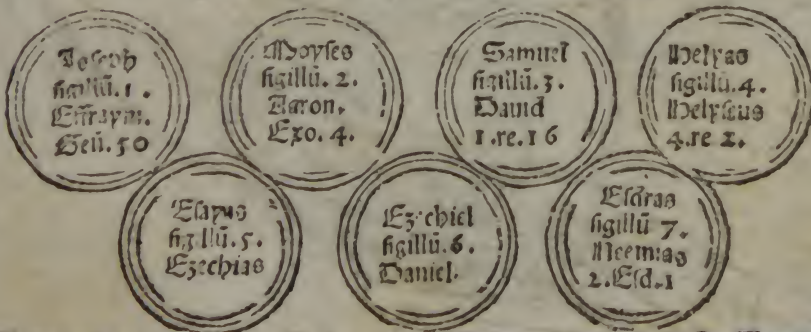 Joſeph
ſigillū.1.
Effraym.
Geñ.50
Moyſes
ſigillū.2.
Aaron.
Exo.4.
Samuel
ſigillū.3.
Dauid
1.re.16
Helyas
ſigillū.4.
Helyſeus
4.re 2.
Eſayas
ſigillū.5.
Ezechias
Ezechiel
ſigillū.6.
Daniel.
Eſdras
ſigillū 7.
Neemias
2.Eſd.1